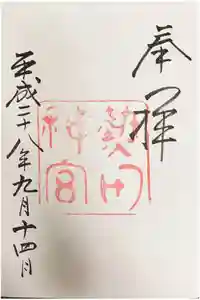 奉拝
熱田神宮
平成二十八年九月十四日